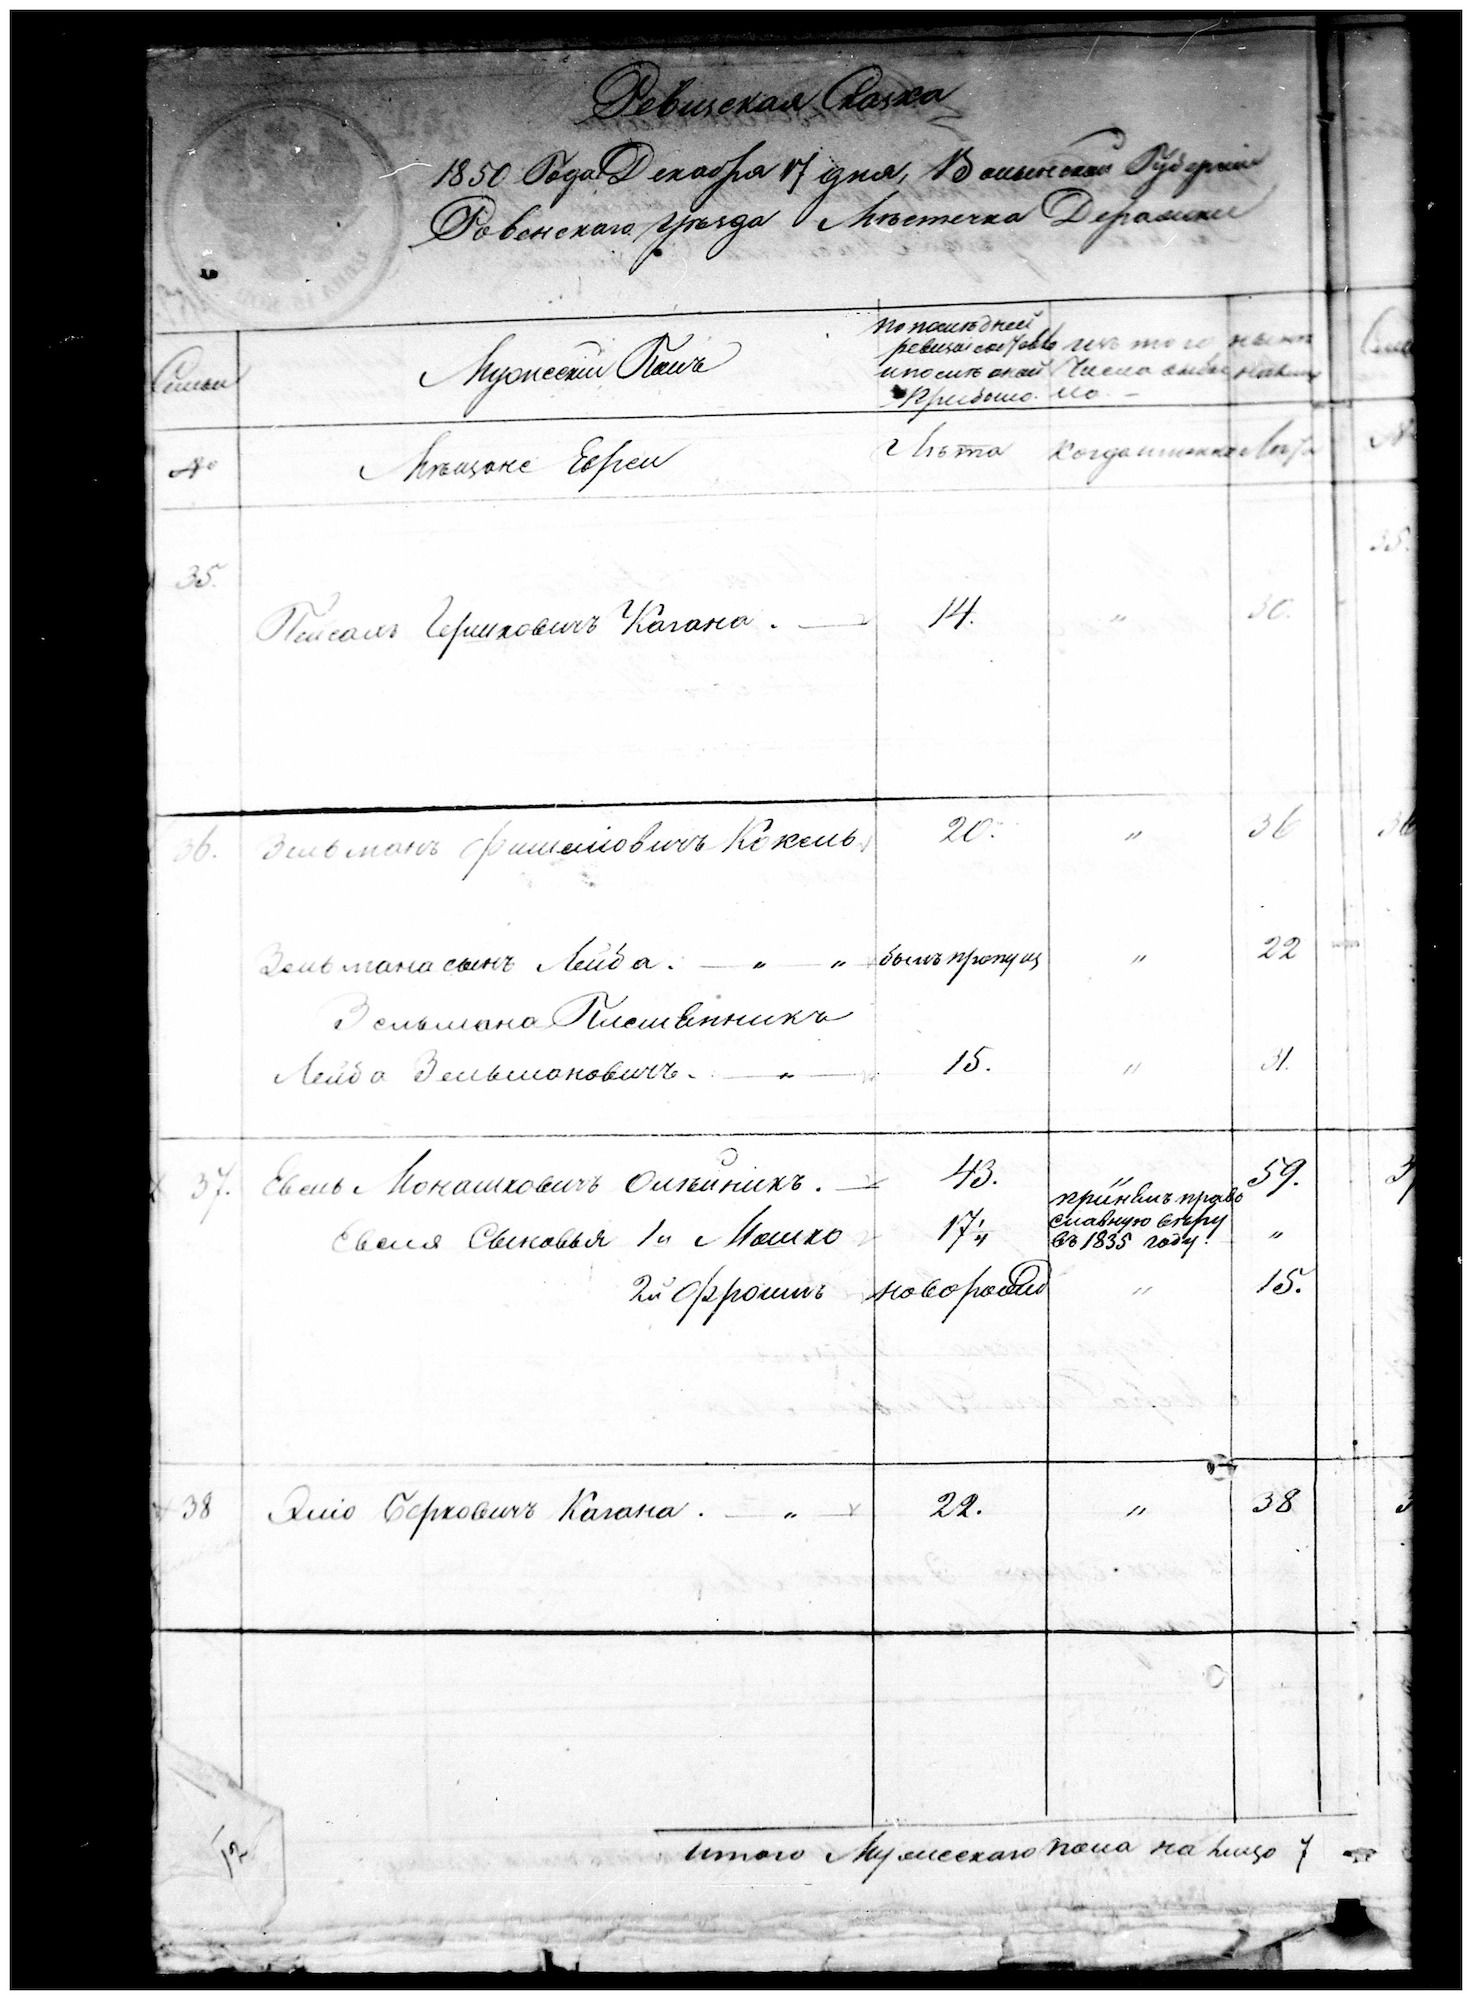 Ревизская Сказка
1850 Года Декабря 17 дня, Волынской Губернии
Ровенского уѣзда Мѣстечка Деражни
Семьи
Мужескій Полъ
по послѣдней
ревизіи состояло
и послѣ оной
прибыло.
изъ того
числа выбы
ло.
нынѣ
на лицо
№
Мѣщане Евреи
Лѣта
когда именно
Лѣта
35.
Пейсахъ Гершковичъ Кагана. 14. " 30.
36. Зельманъ Фишелювичъ Кокель 20. " 36
Зельмана сынъ Лейба. " " былъ пропущ " 22
Зельмана Племѣнникъ
Лейба Зельмановичъ. " 15. " 31.
37. Евель Монашковичъ Олѣйникъ. 43. " 59.
Евеля Сыновья 1й Мошко 17 1/4 принялъ право
славную вѣру
въ 1835 году. "
2й Фроимъ новорожд " 15.
38 Элio Берковичъ Кагана. " 22. " 38
Итого Мужескаго пола на лицо 7
12